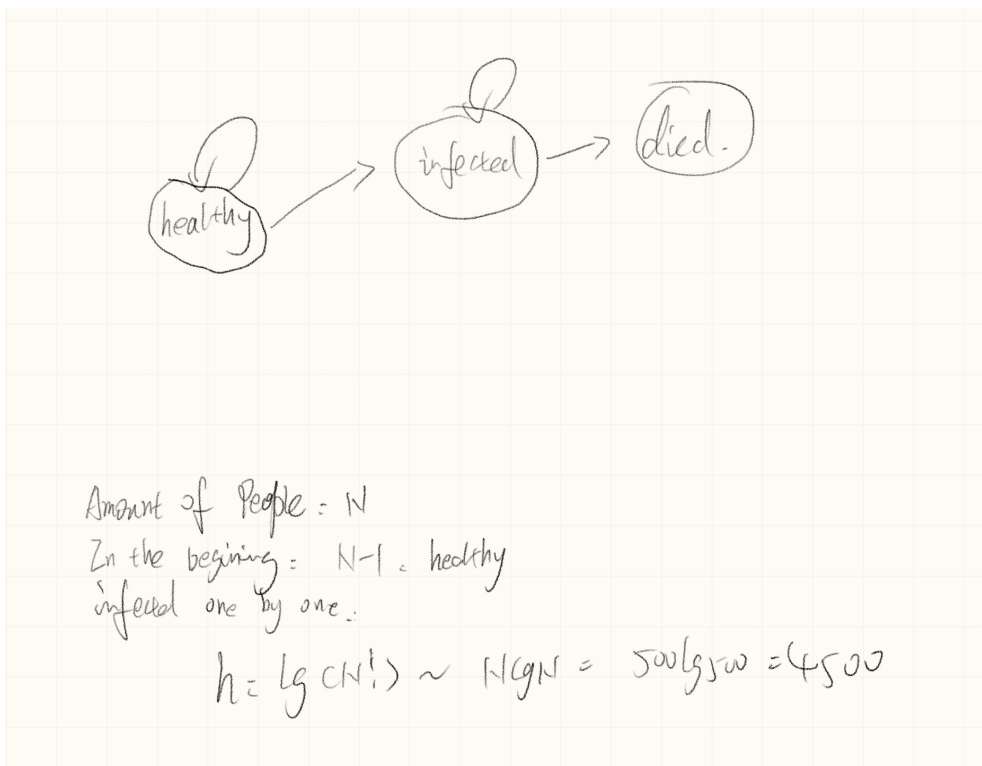 healthy
infected
died.
Amount of People : N
In the begining : N-1 . healthy
infected one by one.
h = lg (N!) ~ N lg N = 500 lg 500 = 4500